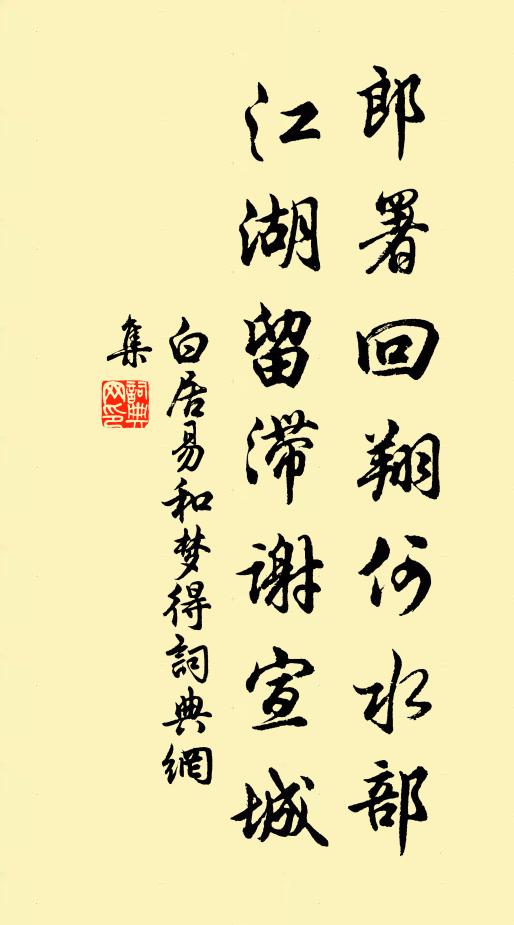 郎署回翔何水部
江湖留滞謝宣城
白居易和梦得詞典網
集
詞典网印